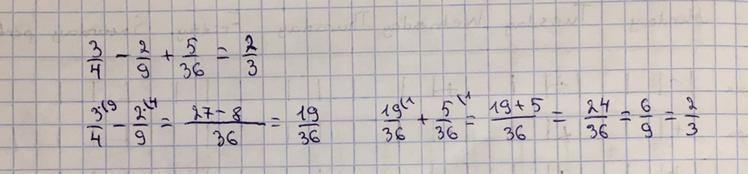 3/4 - 2/9 + 5/36 = 2/3
3·(9/4 - 2·(4/9 = 27-8/36 = 19/36    19(1/36 + 5(1/36 = 19+5/36 = 24/36 = 6/9 = 2/3